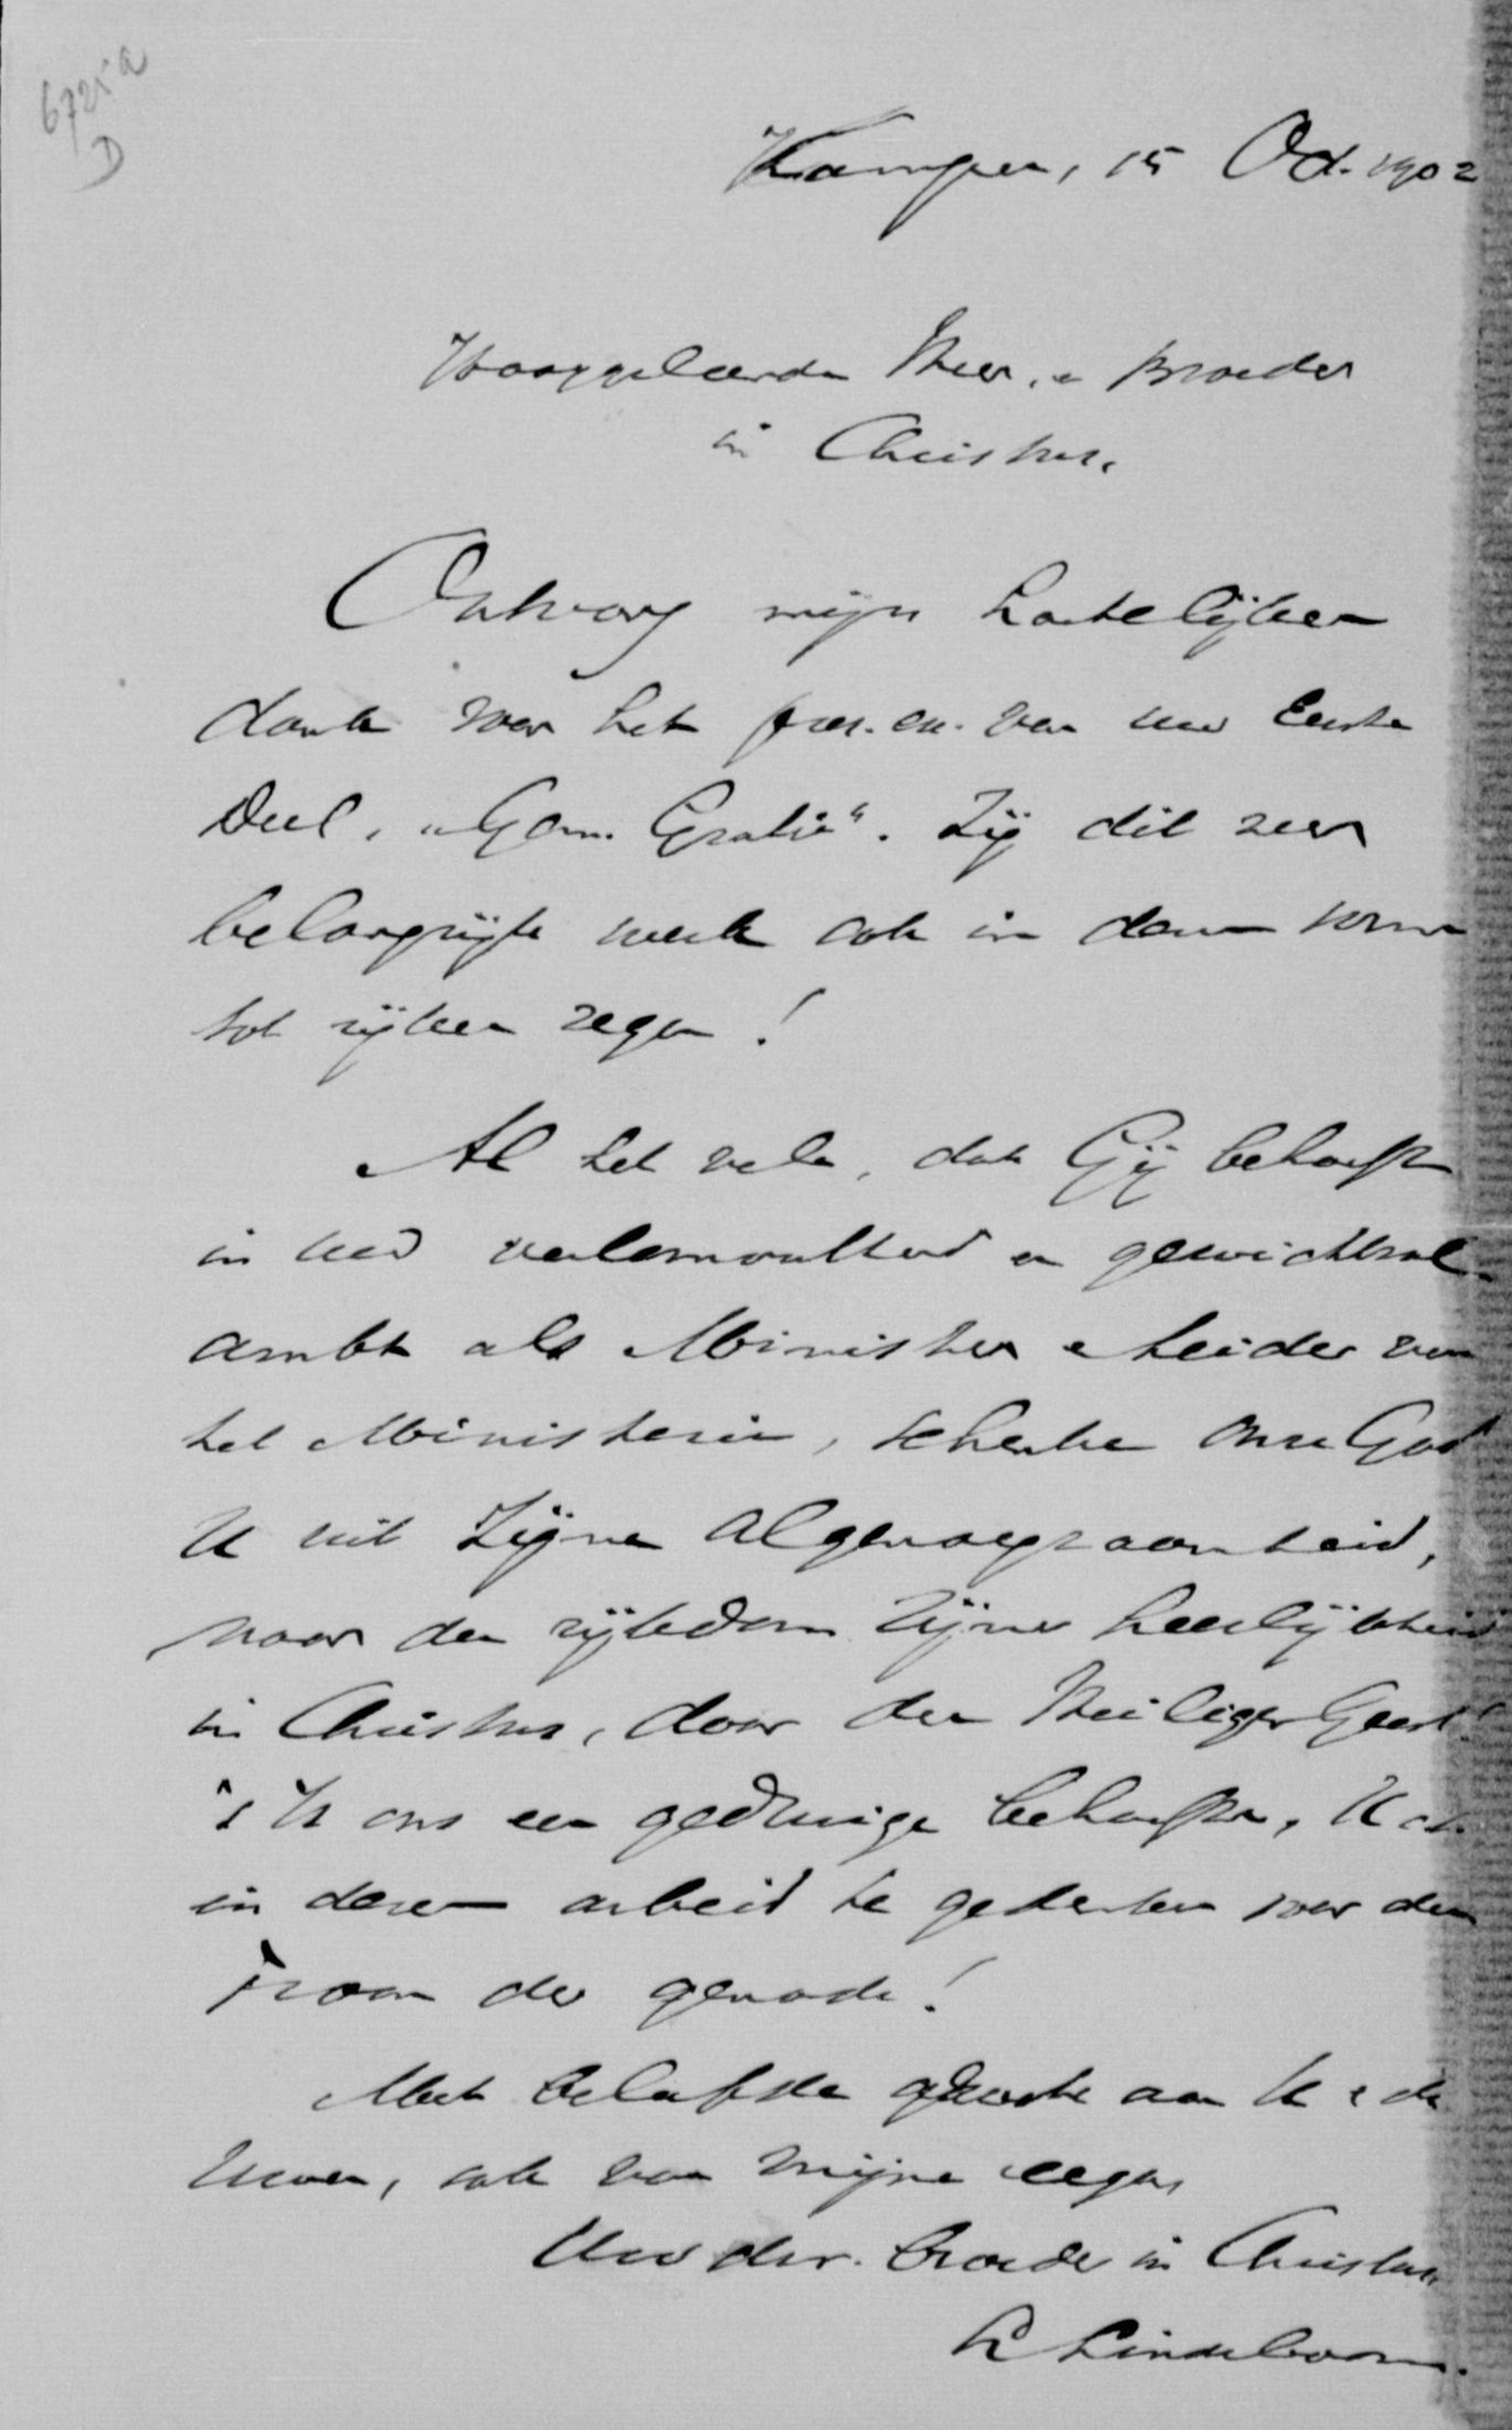 6725a
D
Kampen, 15 Oct. 1902
Hooggeleerde Heer, en Broeder
in Christus.
Ontvang mijn hartelijken
dank voor het pres. ex. van uw Eerste
Deel, „Gem. Gratie". Zij dit zeer
belangrijke werk ook in dezen vorm
tot rijken zegen!
Al het vele, dat Gij behoeft
in uw veelomvattend en gewichtvol
ambt als Minister en Leider van
het Ministerie, schenke onze God
U uit Zijne Algenoegzaamheid,
naar den rijkdom Zijner heerlijkheid
in Christus, door den Heiligen Geest!
't Is ons een gedurige behoefte, U ook
in dezen arbeid te gedenken voor den
troon der genade!
Met beleefde groete aan U en de
Uwen, ook van mijne
Uw dw. broeder in Christus
L Lindeboom.